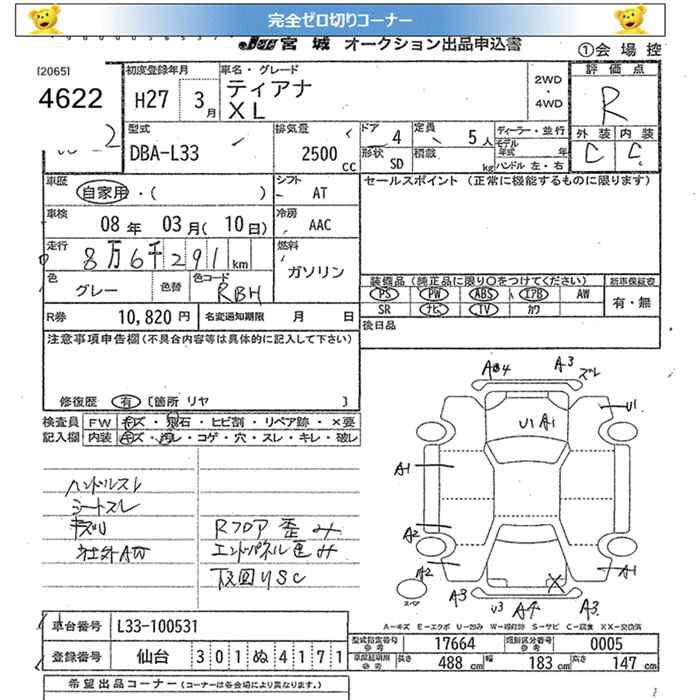 完全ゼロ切りコーナー
JU 宮城 オークション出品申込書
①会場控
[2065]
4622
初度登録年月
H27 3月
車名・グレード
ティアナ
XL
2WD
・
4WD
評価点
R
外装 内装
C C
型式
DBA-L33
排気量
2500 CC
ドア 4
形状 SD
定員 5人
積載 kg
ディーラー・並行
モデル年式 年
ハンドル 左・右
車歴
自家用・( )
シフト AT
セールスポイント (正常に機能するものに限ります)
車検
08年 03月(10日)
冷房 AAC
走行
8万6千291km
燃料
ガソリン
色 グレー
色替
色コード RBH
装備品(純正品に限り○をつけてください)
新車保証書
PS PW ABS エアB AW
SR ナビ TV カワ
有・無
R券 10,820円
名変通知期限 月 日
後日品
注意事項申告欄(不具合内容等は具体的に記入して下さい)
修復歴 有 [箇所 リヤ ]
検査員記入欄
FW キズ・飛石・ヒビ割・リペア跡・×要
内装 キズ・汚レ・コゲ・穴・スレ・キレ・破レ
ハンドルスレ
シートスレ
キズリ
社外AW
Rフロア歪み
エンドパネル歪み
A4 A3 ズレ
U1
U1 A1
A1
A2
A2
A1
A3
U3 A4 A3
X
スペア
A-キズ E-エクボ U-凹み W-補修跡 S-サビ C-腐食 XX-交換済
車台番号 L33-100531
登録番号 仙台 301ぬ4171
型式指定番号 参考 17664
類別区分番号 参考 0005
車庫証明用 参考 長さ 488cm 幅 183cm 高さ 147cm
希望出品コーナー (コーナーは各会場により異なります。)